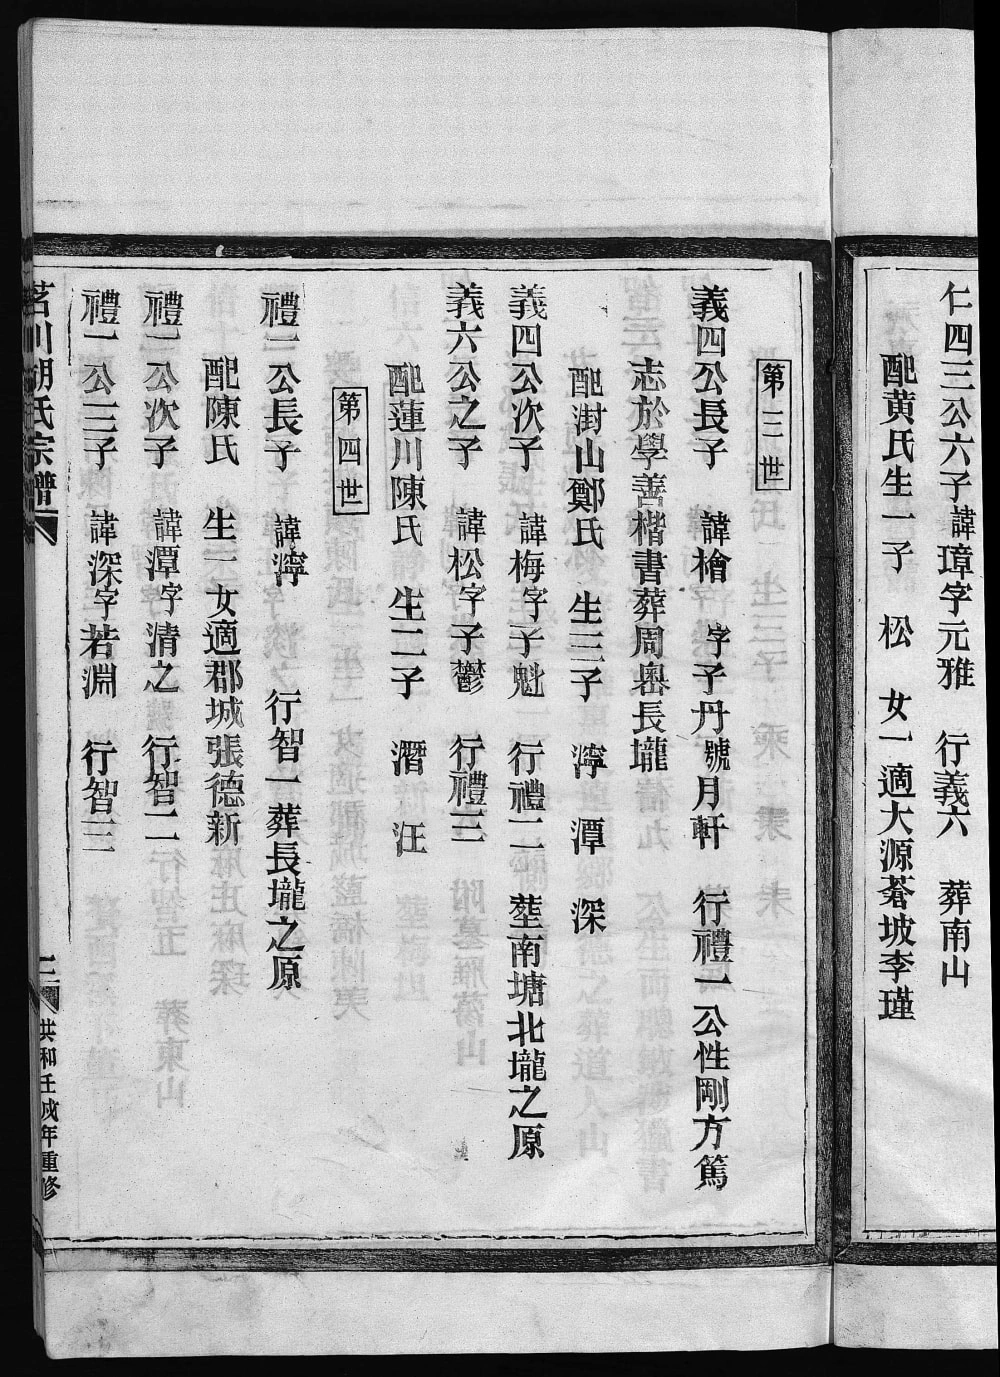 仁四三公六子諱璋字元雅 行義六 葬南山
配黄氏生一子 松 女一適大源蒼坡李瑾
第三世
義四公長子 諱檜 字子丹號月軒 行禮一公性剛方篤
志於學善楷書葬周嶴長壠
配澍山鄭氏 生三子 濘 潭 深
義四公次子 諱梅字子魁 行禮二 塟南塘北壠之原
義六公之子 諱松字子鬱 行禮三
配蓮川陳氏 生二子 潛 汪
第四世
禮一公長子 諱濘 行智一葬長壠之原
配陳氏 生一女適郡城張德新
禮一公次子 諱潭字清之 行智二
禮一公三子 諱深字若淵 行智三
茗川胡氏宗譜
三 共和壬戌年重修